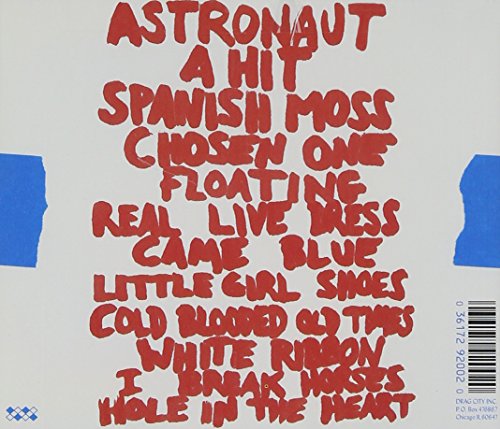 ASTRONAUT
A HIT
SPANISH MOSS
CHOSEN ONE
FLOATING
REAL LIVE DRESS
CAME BLUE
LITTLE GIRL SHOES
COLD BLOODED OLD TIMES
WHITE RIBBON
I BREAK HORSES
HOLE IN THE HEART
0 36172 92002 0
DRAG CITY INC.
P.O. Box 476867
Chicago IL 60647